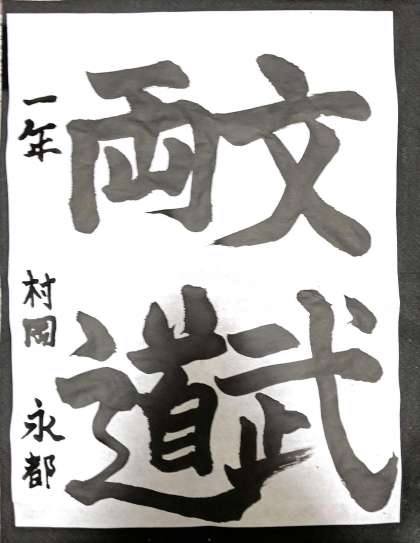 文武
両道
一年 村岡 永都